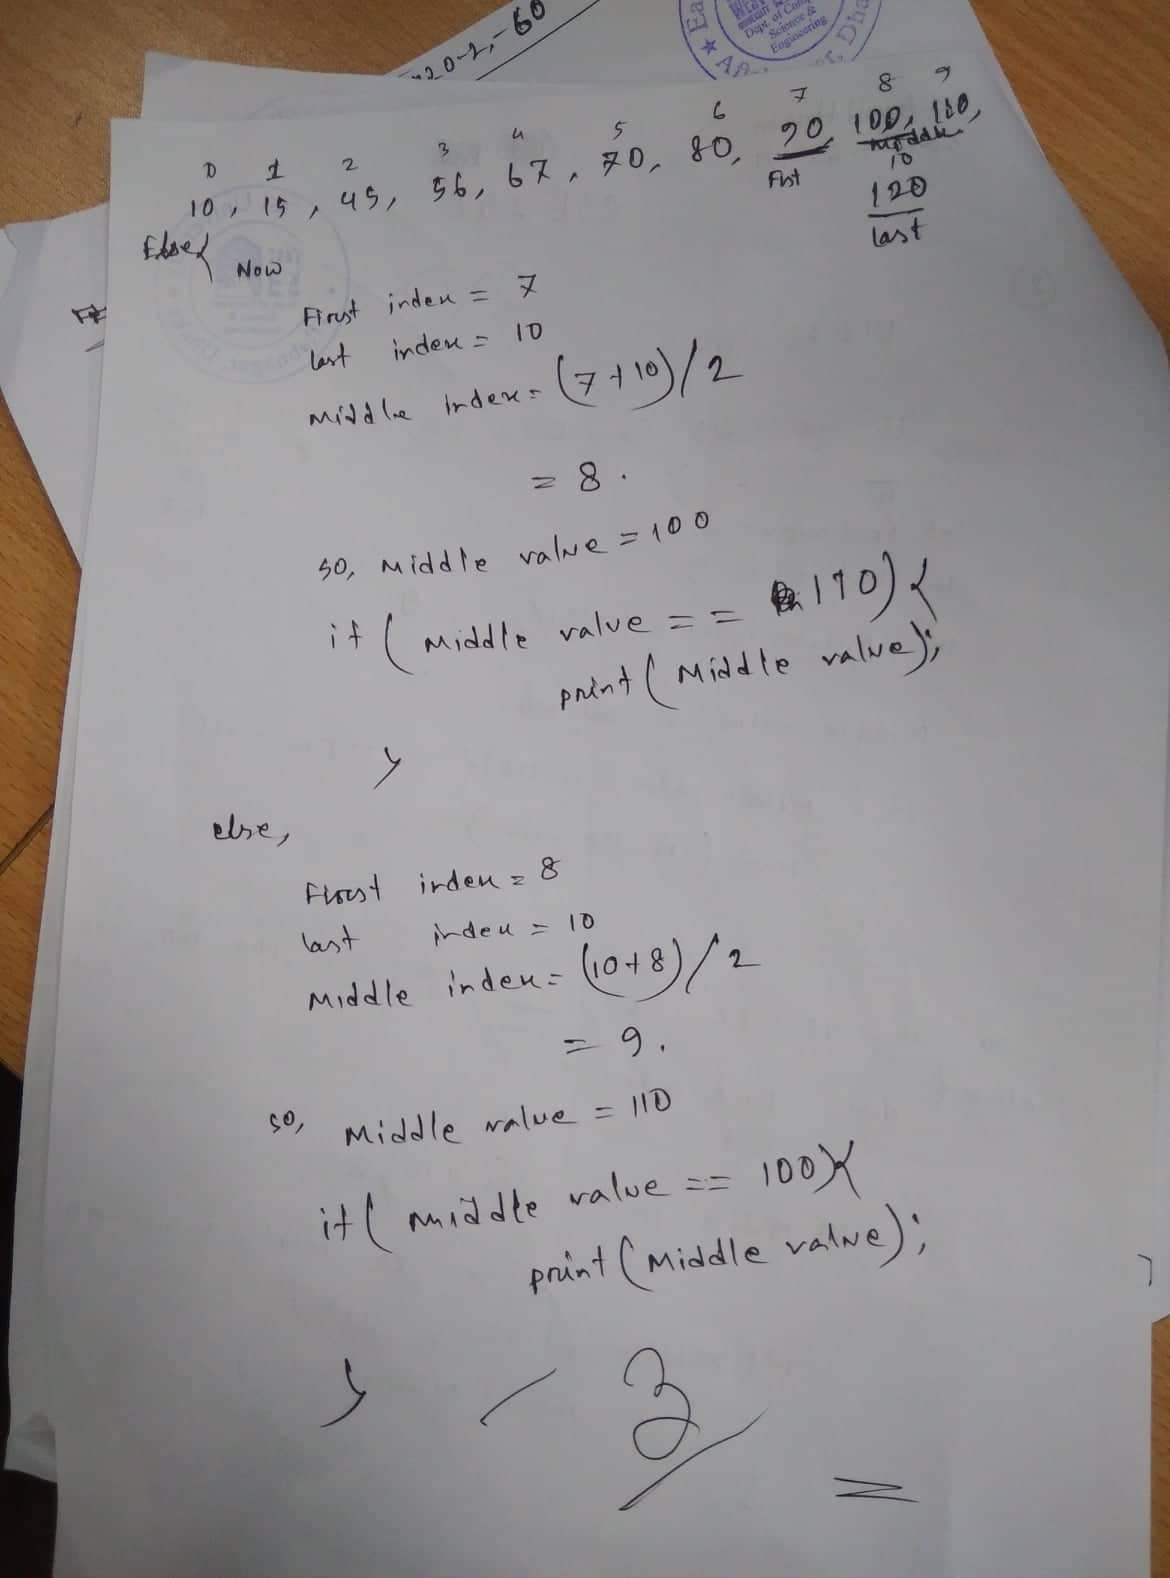 20-2,-60
Dept. of Com
Science &
Engineering
0 1 2 3 4 5 6 7 8 9
10, 15, 45, 56, 67, 70, 80, 90, 100, 110,
First
Middle
10
120
last
Else{
Now
First index = 7
last index = 10
Middle index = (7+10)/2
= 8.
so, Middle value = 100
if ( Middle value == 110) {
print ( Middle value);
}
else,
First index = 8
last index = 10
Middle index = (10+8)/2
= 9.
so, Middle value = 110
if ( Middle value == 100){
print ( Middle value);
}
3